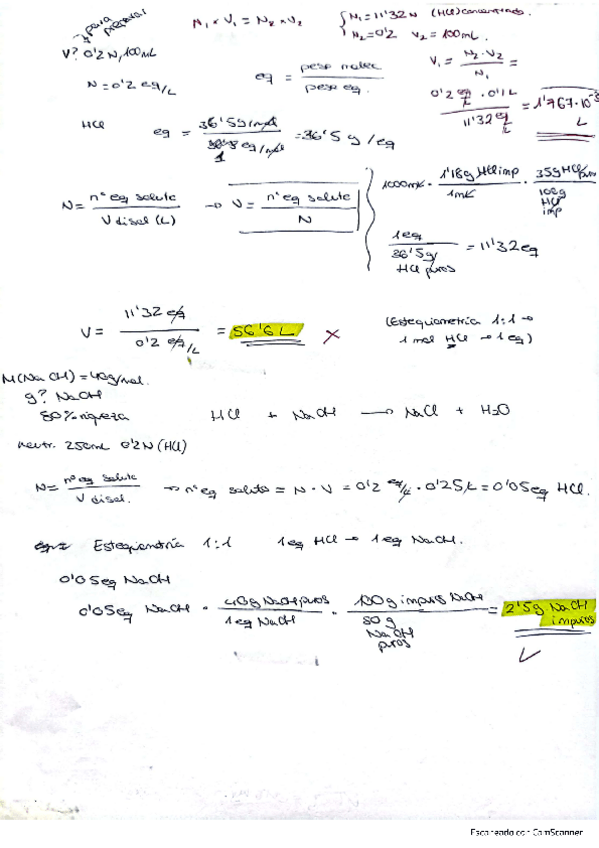 para preparar
V? 0'2 N, 100mL
N = 0'2 eq/L
N₁ × V₁ = N₂ × V₂
N₁ = 11'32 N (HCl) concentrado.
N₂ = 0'2 V₂ = 100mL.
eq = peso molec / peso eq.
V₁ = N₂ · V₂ / N₁ =
0'2 eq/L · 0'1 L / 11'32 eq/L = 1'767·10⁻³ L
HCl eq = 36'5 g/mol / 1 eq/mol = 36'5 g/eq
N = nº eq soluto / V disol (L) → V = nº eq soluto / N
1000 mL · 1'18g HCl imp / 1 mL · 35g HCl puro / 100g HCl imp
1 eq / 36'5 g HCl puros = 11'32 eq
V = 11'32 eq / 0'2 eq/L = 56'6 L ×
(Estequiometría 1:1 →
1 mol HCl → 1 eq)
M(NaOH) = 40g/mol.
g? NaOH
80% riqueza
HCl + NaOH → NaCl + H₂O
neutr. 250mL 0'2 N (HCl)
N = nº eq soluto / V disol. → nº eq soluto = N · V = 0'2 eq/L · 0'25 L = 0'05 eq HCl.
Estequiometría 1:1 1 eq HCl → 1 eq NaOH.
0'05 eq NaOH
0'05 eq NaOH · 40g NaOH puros / 1 eq NaOH · 100 g impuros NaOH / 80 g NaOH puros = 2'5g NaOH impuros
Escaneado con CamScanner